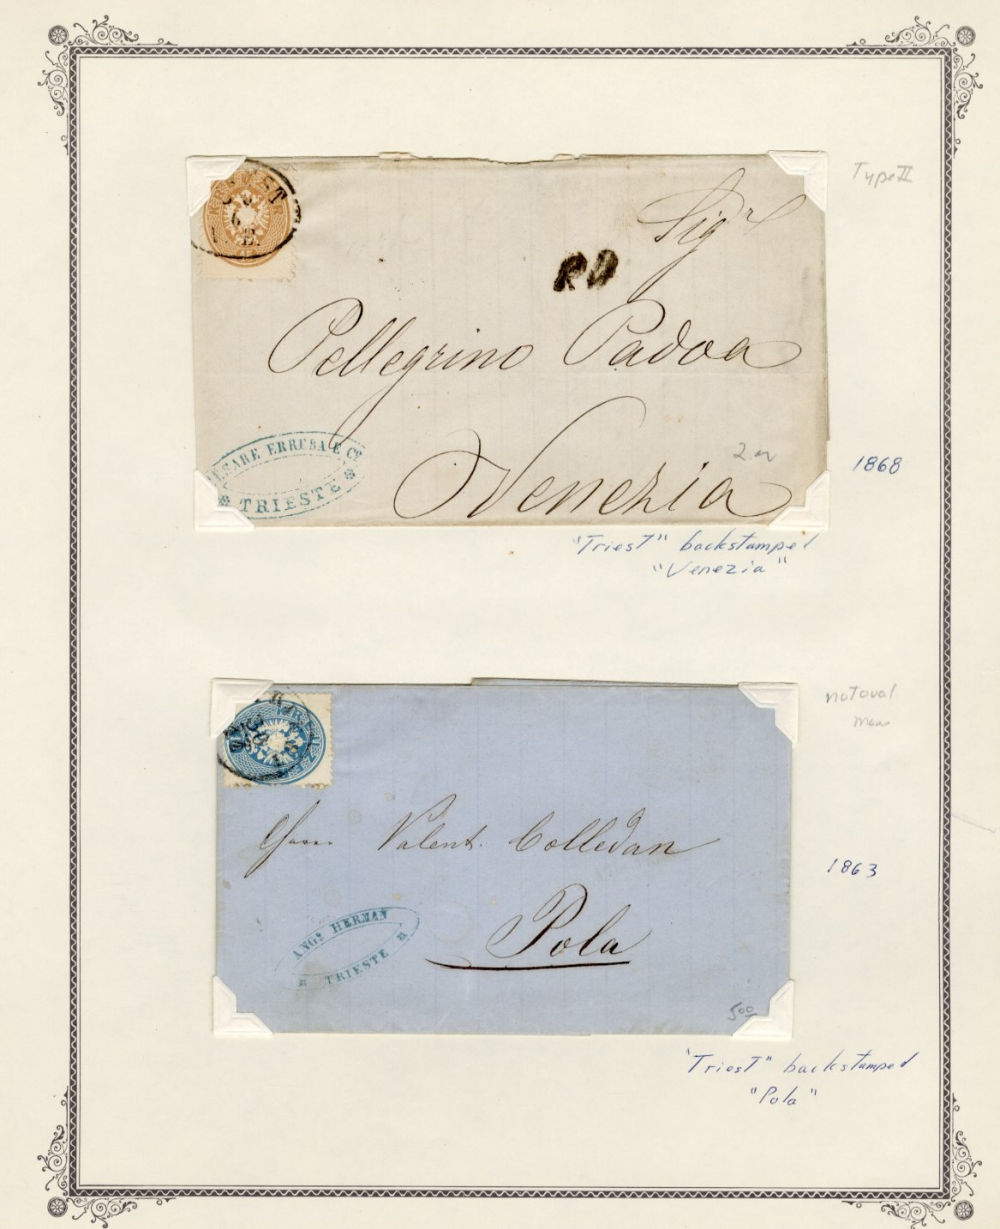 Type II
Sigr
PD
Pellegrino Padoa
Venezia
CESARE ERRERA E Co
TRIESTE
1868
"Triest" backstamped
"Venezia"
not oval
Valent. Colledan
Pola
ANGo HERMAN
TRIESTE
1863
500
"Triest" backstamped
"Pola"